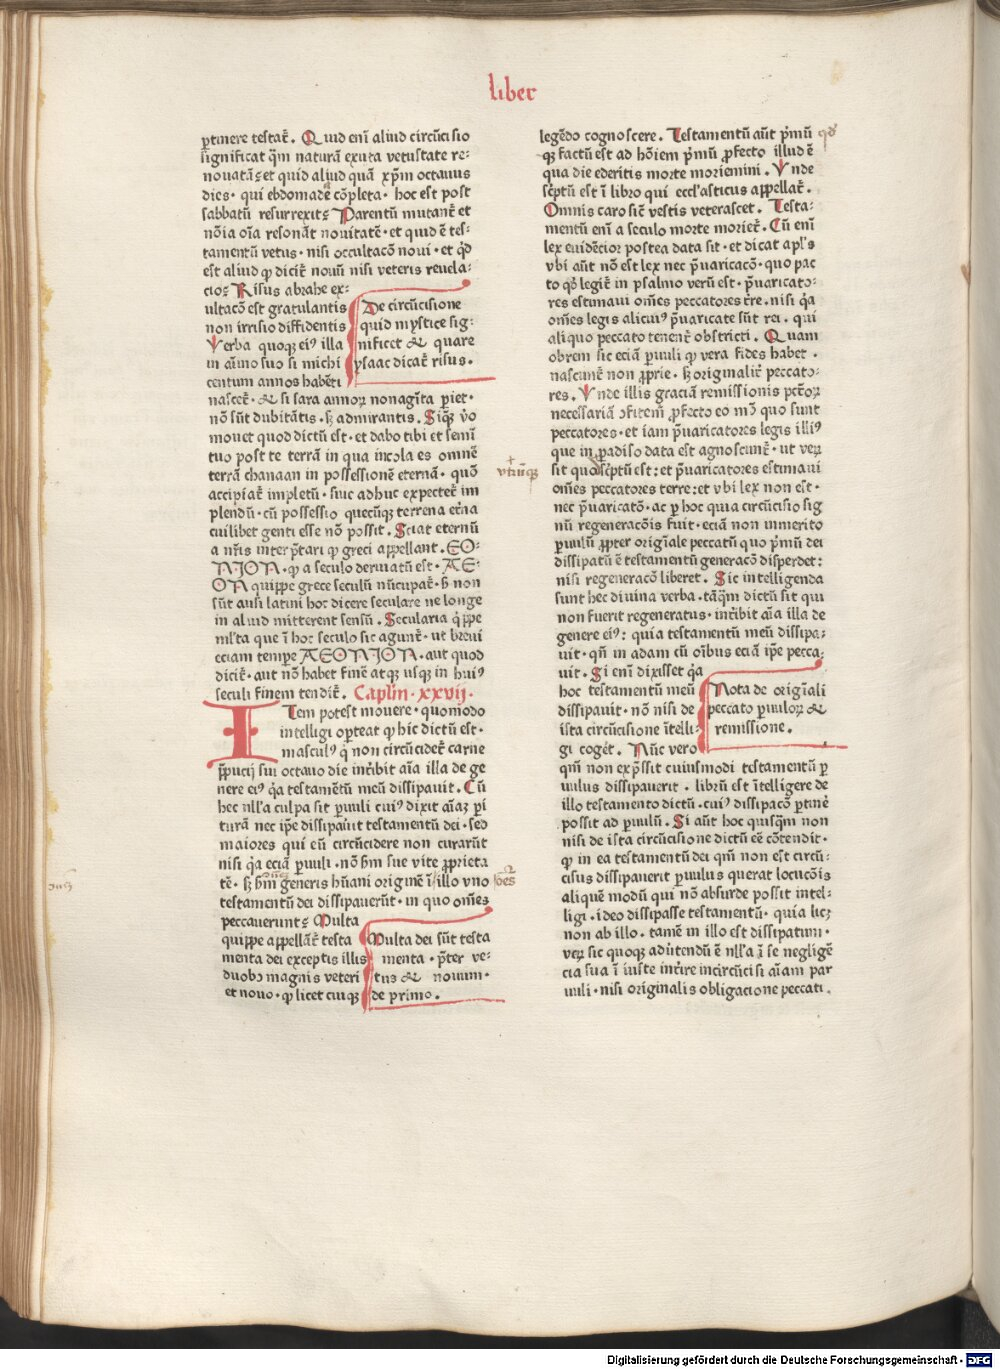 liber
ꝑtinere testat̃. Quid eni aliud circũcisio
significat q̃m naturã exuta vetustate re-
nouatã: et quid aliud quã xp̃m octauus
dies· qui ebdomade cõpleta· hoc est post
sabbatũ resurrexit: Parentũ mutant̃ et
nõia oĩa resonãt nouitatẽ· et quid ẽ tes-
tamentũ vetus· nisi occultacõ noui· et q̃d
est aliud ꝙ dicit̃ nouũ nisi veteris reuela-
cio: Risus abrahe ex-
ultacõ est gratulantis
non irrisio diffidentis
Verba quoqꝫ eiꝰ illa
in aĩmo suo si michi
centum annos habẽti
De circũcisione
quid mystice sig-
nificet & quare
ysaac dicat̃ risus.
nascet̃· & si sara annoꝝ nonagĩta ꝑiet·
nõ sũt dubitãtis· sꝫ admirantis. Siqꝫ v̾o
mouet quod dictũ est· et dabo tibi et semĩ
tuo post te terrã in qua incola es omnẽ
terrã chanaan in possessionẽ eternã· quõ
accipiat̃ impletũ· siue adhuc expectet̃ im
plendũ· cũ possessio quecũqꝫ terrena et̾na
cuilibet genti esse nõ possit. Sciat eternũ
a nr̃is interp̃tari ꝙ greci appellant. EO-
NION· ꝙ a seculo deriuatũ est· AE-
ON quippe grece seculũ nũcupat̃· s̃ non
sũt ausi latini hoc dicere seculare ne longe
in aliud mitterent sensũ. Secularia q̃ppe
ml̃ta que ĩ hoc seculo sic agunt̃· ut breui
eciam temꝑe AEONION· aut quod
dicit̃· aut nõ habet finẽ atqꝫ usqꝫ in huiꝰ
seculi finem tendit̃. Caplm̃·xxvij·
ITem potest mouere· quomodo
intelligi oꝑteat ꝙ hic dictũ est·
masculꝰ q̃ non circũcidet̃ carne
p̃pucij sui octauo die int̾ibit aĩa illa de ge
nere eiꝰ q̃a testamẽtũ meũ dissipauit. Cũ
hec nll̃a culpa sit ꝑuuli cuiꝰ dixit aĩaꝫ ꝑi
turã nec ip̃e dissipauit testamentũ dei· sed
maiores qui eũ circũcidere non curarũt
nisi q̃a eciã ꝑuuli· nõ s̃m sue vite ꝓprieta
tẽ· sꝫ s̃m generis hũani originẽ ĩ illo vno
testamentũ dei dissipauerũt· in quo om̃es
peccauerunt: Multa
quippe appellãt̃ testa
menta dei exceptis illis
duobꝰ magnis veteri
et nouo· ꝙ licet cuiqꝫ
Multa dei sũt testa
menta· p̃ter ve-
tus & nouum·
de primo.
legẽdo cognoscere. Testamentũ aũt p̃mũ
qꝫ factũ est ad hõiem p̃mũ ꝓfecto illud ẽ
qua die ederitis morte moriemini. Vnde
sc̾ptũ est ĩ libro qui eccl'asticus appellat̃.
Omnis caro sic̃ vestis veterascet. Testa-
mentũ eni a seculo morte moriet̃. Cũ eni
lex euidẽcior postea data sit· et dicat apl's
vbi aũt nõ est lex nec p̃uaricacõ· quo pac
to qd̾ legit̃ in psalmo verũ est· p̃uaricato-
res estimaui om̃es peccatores t̾re. nisi q̃a
om̃es legis alicuiꝰ p̃uaricate sũt rei. qui
aliquo peccato tenent̃ obstricti. Quam
obrem sic eciã ꝑuuli ꝙ vera fides habet·
nascunt̃ non ꝓprie· sꝫ originalit̾ peccato-
res. Vnde illis graciã remissionis pct̃oꝝ
necessariã ꝯfitem̃ ꝓfecto eo mõ quo sunt
peccatores· et iam p̃uaricatores legis illiꝰ
que in ꝑadiso data est agnoscunt̃· ut veꝝ
sit quod sc̾ptũ est: et p̃uaricatores estimaui
om̃es peccatores terre: et vbi lex non est·
nec p̃uaricatõ· ac ꝑ hoc quia circũcisio sig
nũ regeneracõis fuit· eciã non inmerito
ꝑuulũ ꝓpter origĩale peccatũ quo p̃mũ dei
dissipatũ ẽ testamentũ generacõ disperdet:
nisi regeneracõ liberet. Sic intelligenda
sunt hec diuina verba· tãq̃m dictũ sit qui
non fuerit regeneratus· int̾ibit aĩa illa de
genere eiꝰ: quia testamentũ meũ dissipa-
uit· qñ in adam cũ oĩbus eciã ip̃e pecca-
uit. Si eni dixisset q̃a
hoc testamentũ meũ
dissipauit· nõ nisi de
ista circũcisione ĩtelli-
gi coget̃. Nũc vero
Nota de origĩali
peccato ꝑuuloꝝ &
remissione.
qm̃ non exp̃ssit cuiusmodi testamentũ ꝑ
uulus dissipauerit· librũ est ĩtelligere de
illo testamento dictũ· cuiꝰ dissipacõ ꝑtinẽ
possit ad ꝑuulũ. Si aũt hoc quisq̃m non
nisi de ista circũcisione dictũ eẽ cõtendit·
ꝙ in ea testamentũ dei qm̃ non est circũ-
cisus dissipauerit ꝑuulus querat locucõis
aliquẽ modũ qui nõ absurde possit intel-
ligi· ideo dissipasse testamentũ· quia licꝫ
non ab illo· tamẽ in illo est dissipatum·
veꝝ sic quoqꝫ aduitendũ ẽ nll̃a ĩ se negligẽ
cia sua ĩ iuste int̾ire incircũcisi aĩam par
uuli· nisi originalis obligacione peccati.
vtrũqꝫ
oẽs
Digitalisierung gefördert durch die Deutsche Forschungsgemeinschaft - DFG